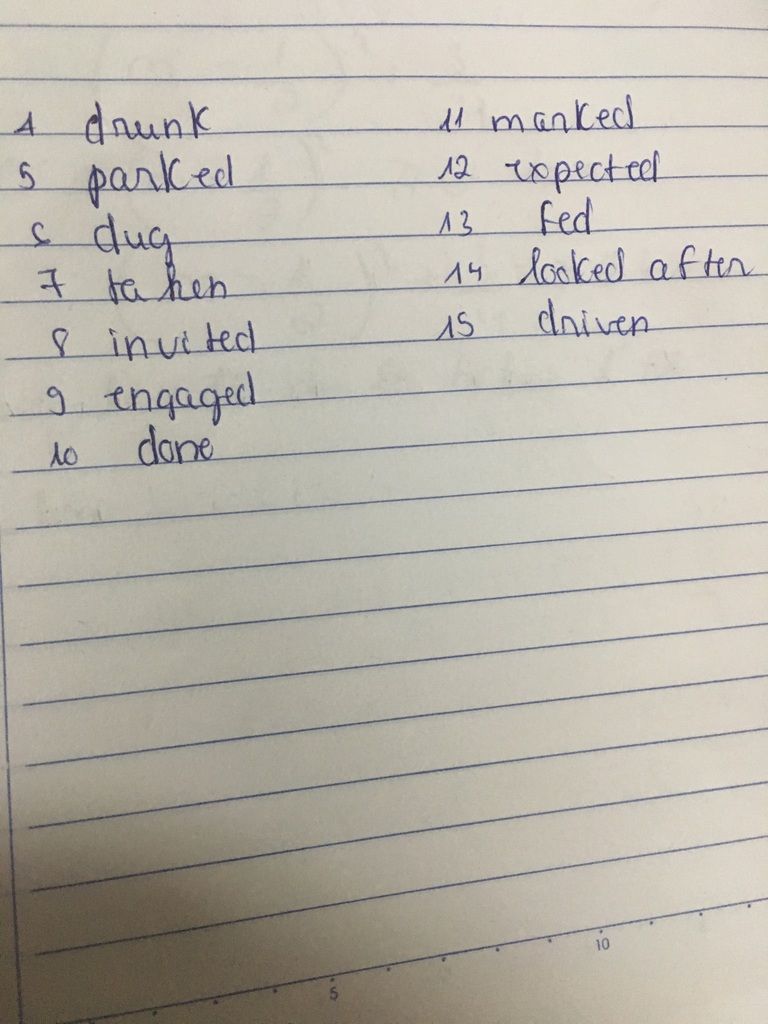 4 drunk
5 parked
6 dug
7 taken
8 invited
9 engaged
10 done
11 marked
12 expected
13 fed
14 looked after
15 driven
5
10